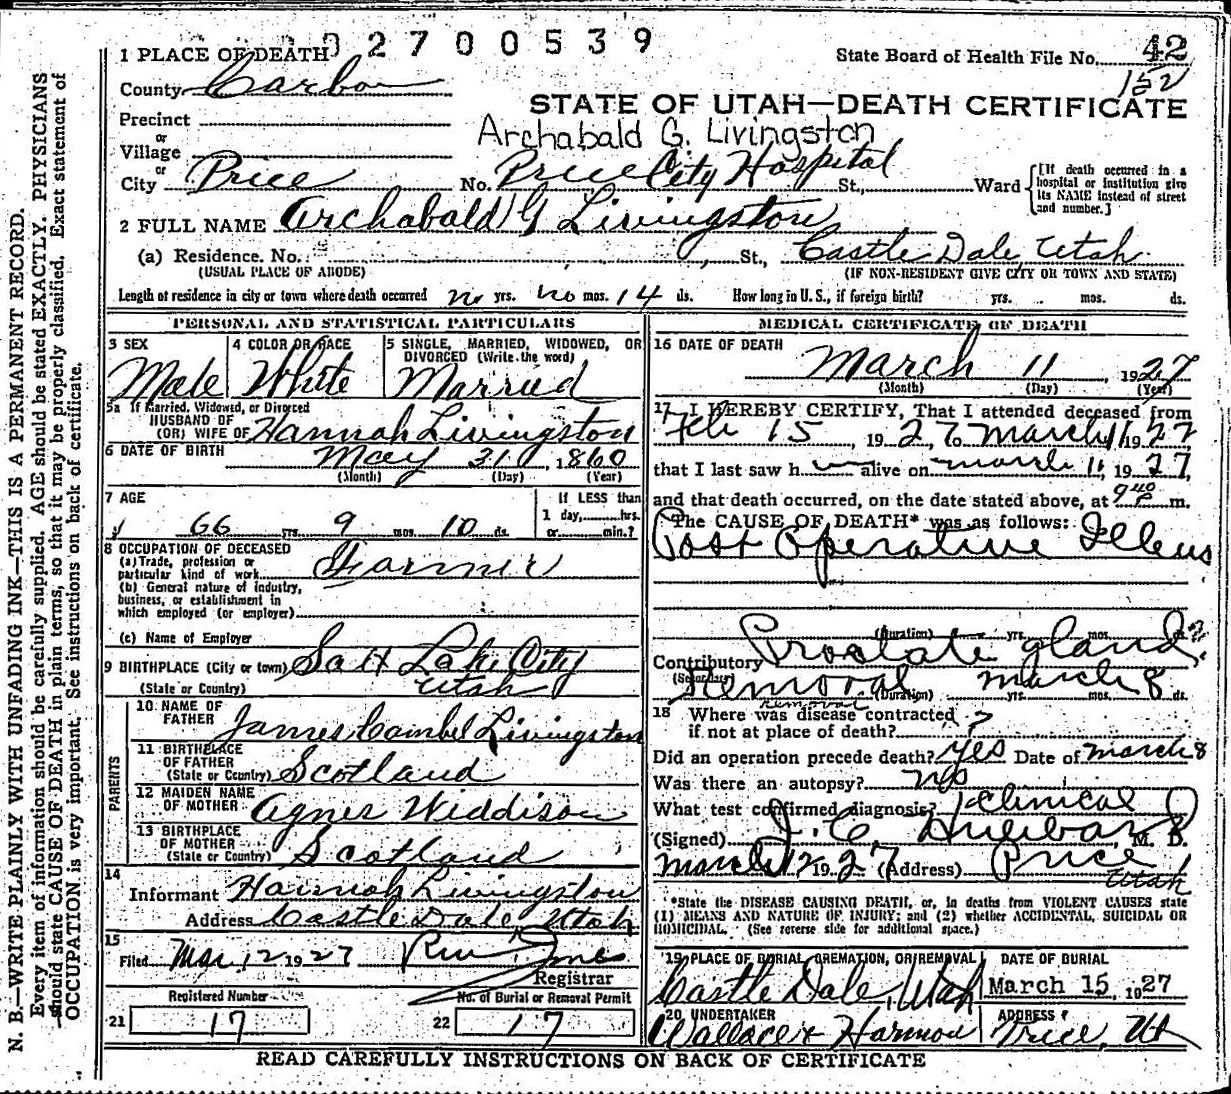 2700539
1 PLACE OF DEATH
State Board of Health File No. 42
152
County Carbon
STATE OF UTAH—DEATH CERTIFICATE
Precinct
Archabald G. Livingston
or
Village
or
City Price No. Price City Hospital St., Ward
[If death occurred in a hospital or institution give its NAME instead of street and number.]
2 FULL NAME Archabald G Livingston
(a) Residence. No. St., Castle Dale, Utah
(USUAL PLACE OF ABODE) (IF NON-RESIDENT GIVE CITY OR TOWN AND STATE)
Length of residence in city or town where death occurred no yrs. no mos. 14 ds. How long in U. S., if foreign birth? yrs. mos. ds.
PERSONAL AND STATISTICAL PARTICULARS
3 SEX
Male
4 COLOR OR RACE
White
5 SINGLE, MARRIED, WIDOWED, OR
DIVORCED (Write the word)
Married
5a If Married, Widowed, or Divorced
HUSBAND OF
(OR) WIFE OF Hannah Livingston
6 DATE OF BIRTH May 31 1860
(Month) (Day) (Year)
7 AGE
66 yrs. 9 mos. 10 ds.
If LESS than
1 day, hrs.
or min.?
8 OCCUPATION OF DECEASED
(a) Trade, profession or
particular kind of work Farmer
(b) General nature of industry,
business, or establishment in
which employed (or employer)
(c) Name of Employer
9 BIRTHPLACE (City or town) Salt Lake City
(State or Country) Utah
PARENTS
10 NAME OF
FATHER James Cambel Livingston
11 BIRTHPLACE
OF FATHER
(State or Country) Scotland
12 MAIDEN NAME
OF MOTHER Agnes Widdison
13 BIRTHPLACE
OF MOTHER
(State or Country) Scotland
14
Informant Hannah Livingston
Address Castle Dale, Utah
15
Filed Mar. 12 1927
Registrar
Registered Number
No. of Burial or Removal Permit
21 17 22 17
MEDICAL CERTIFICATE OF DEATH
16 DATE OF DEATH
March 11, 1927
(Month) (Day) (Year)
17 I HEREBY CERTIFY, That I attended deceased from
Feb 15, 1927, to March 11 1927
that I last saw h alive on March 11, 1927,
and that death occurred, on the date stated above, at 9 40 P m.
The CAUSE OF DEATH* was as follows:
Post Operative Illeus
(Duration) yrs. mos. ds.
Contributory Prostate gland
(Secondary) Removal March 8
(Duration) yrs. mos. ds.
removal
18 Where was disease contracted
if not at place of death? ?
Did an operation precede death? yes Date of March 8
Was there an autopsy? no
What test confirmed diagnosis? clinical
(Signed) J. C. Hubbard, M. D.
March 12 1927 (Address) Price, Utah
*State the DISEASE CAUSING DEATH, or, in deaths from VIOLENT CAUSES state
(1) MEANS AND NATURE OF INJURY; and (2) whether ACCIDENTAL, SUICIDAL OR
HOMICIDAL. (See reverse side for additional space.)
19 PLACE OF BURIAL CREMATION, OR REMOVAL
Castle Dale, Utah
DATE OF BURIAL
March 15, 1927
20 UNDERTAKER
Wallace & Harmon
ADDRESS
Price, Ut
READ CAREFULLY INSTRUCTIONS ON BACK OF CERTIFICATE
N. B.—WRITE PLAINLY WITH UNFADING INK—THIS IS A PERMANENT RECORD.
Every item of information should be carefully supplied. AGE should be stated EXACTLY. PHYSICIANS
should state CAUSE OF DEATH in plain terms, so that it may be properly classified. Exact statement of
OCCUPATION is very important. See instructions on back of certificate.